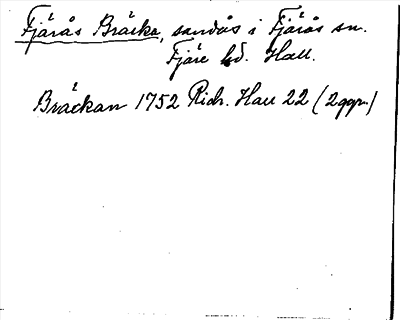 Fjärås Bräcka, sandås i Fjärås sn.
Fjäre hd. Hall.
Bräckan 1752 Rich. Hall 22 (2ggr.)